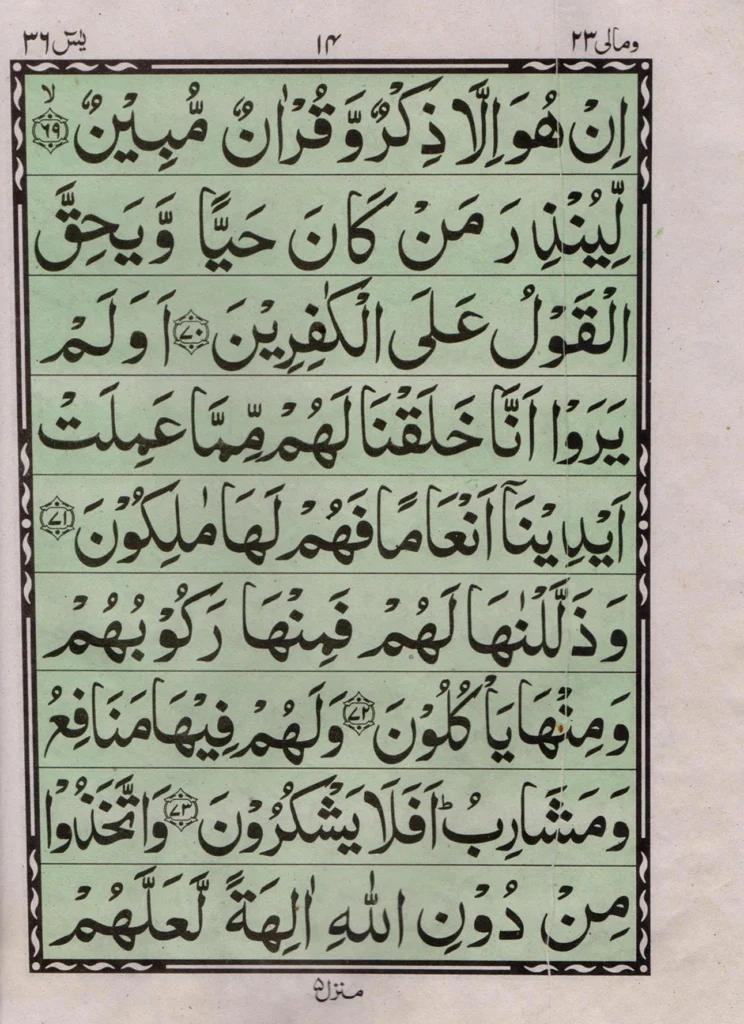 ومالی ۲۳
۱۴
یٰسٓ ۳۶
اِنْ هُوَ اِلَّا ذِكْرٌ وَّ قُرْاٰنٌ مُّبِیْنٌ ﴿۶۹﴾ۙ
لِّیُنْذِرَ مَنْ كَانَ حَیًّا وَّ یَحِقَّ
الْقَوْلُ عَلَی الْكٰفِرِیْنَ ﴿۷۰﴾ اَوَ لَمْ
یَرَوْا اَنَّا خَلَقْنَا لَهُمْ مِّمَّا عَمِلَتْ
اَیْدِیْنَاۤ اَنْعَامًا فَهُمْ لَهَا مٰلِكُوْنَ ﴿۷۱﴾
وَ ذَلَّلْنٰهَا لَهُمْ فَمِنْهَا رَكُوْبُهُمْ
وَ مِنْهَا یَاْكُلُوْنَ ﴿۷۲﴾ وَ لَهُمْ فِیْهَا مَنَافِعُ
وَ مَشَارِبُ ؕ اَفَلَا یَشْكُرُوْنَ ﴿۷۳﴾ وَ اتَّخَذُوْا
مِنْ دُوْنِ اللّٰهِ اٰلِهَةً لَّعَلَّهُمْ
منزل ۵